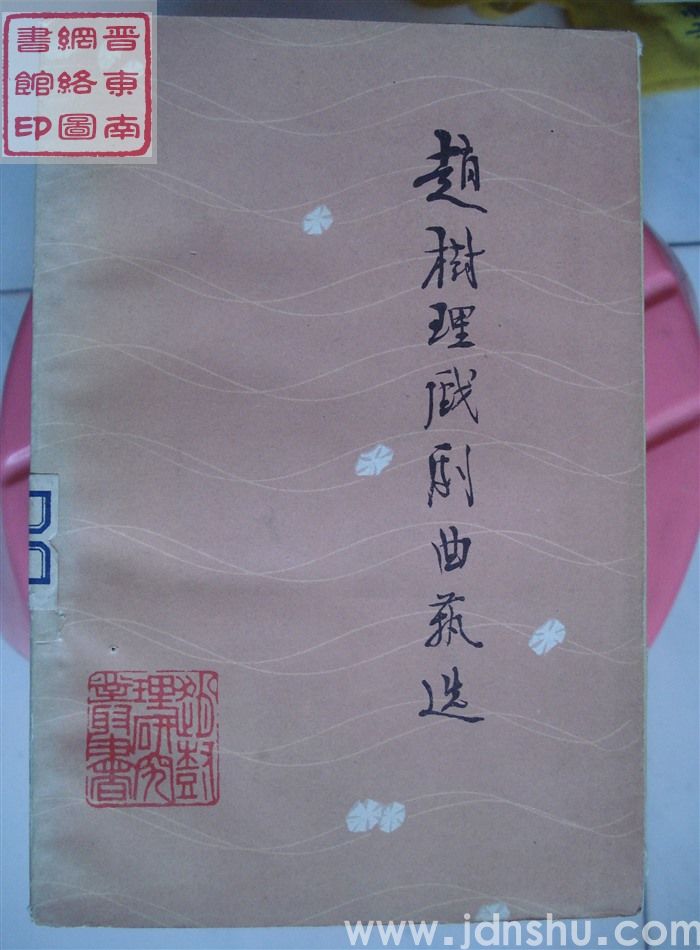 晋東南
網絡圖
書館印
趙樹理戏剧曲藝选
趙樹
理研究
叢書
www.jdnshu.com